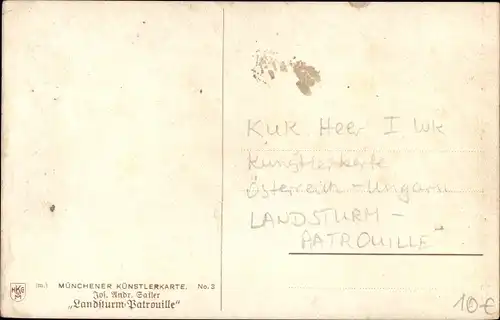 Kuk Heer I Wk
Künstlerkarte
Österreich-Ungarn
LANDSTURM-
PATROUILLE"
10€
HKGM
(m.) MÜNCHENER KÜNSTLERKARTE. No. 3
Jos. Andr. Sailer
„Landsturm-Patrouille“